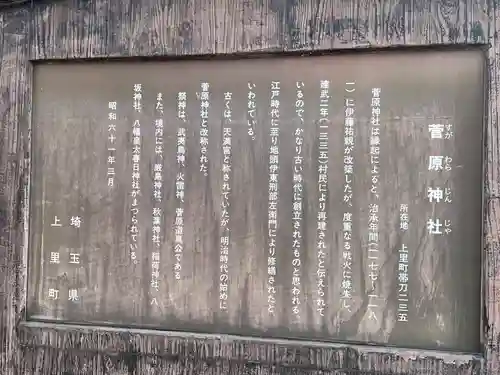 菅原神社
すがわらじんじゃ
所在地 上里町帯刀二三五
菅原神社は縁起によると、治承年間(一一七七~一一八
一)に伊藤祐親が改築したが、度重なる戦火に焼失し、
建武二年(一三三五)村民により再建されたと伝えられて
いるので、かなり古い時代に創立されたものと思われる。
江戸時代に至り地頭伊東刑部左衛門により修繕されたと
いわれている。
古くは、天満宮と称されていたが、明治時代の始めに
菅原神社と改称された。
祭神は、武夷鳥神、火雷神、菅原道真公である
また、境内には、厳島神社、秋葉神社、稲荷神社、八
坂神社、八幡皇太春日神社がまつられている。
昭和六十一年三月
埼玉県
上里町